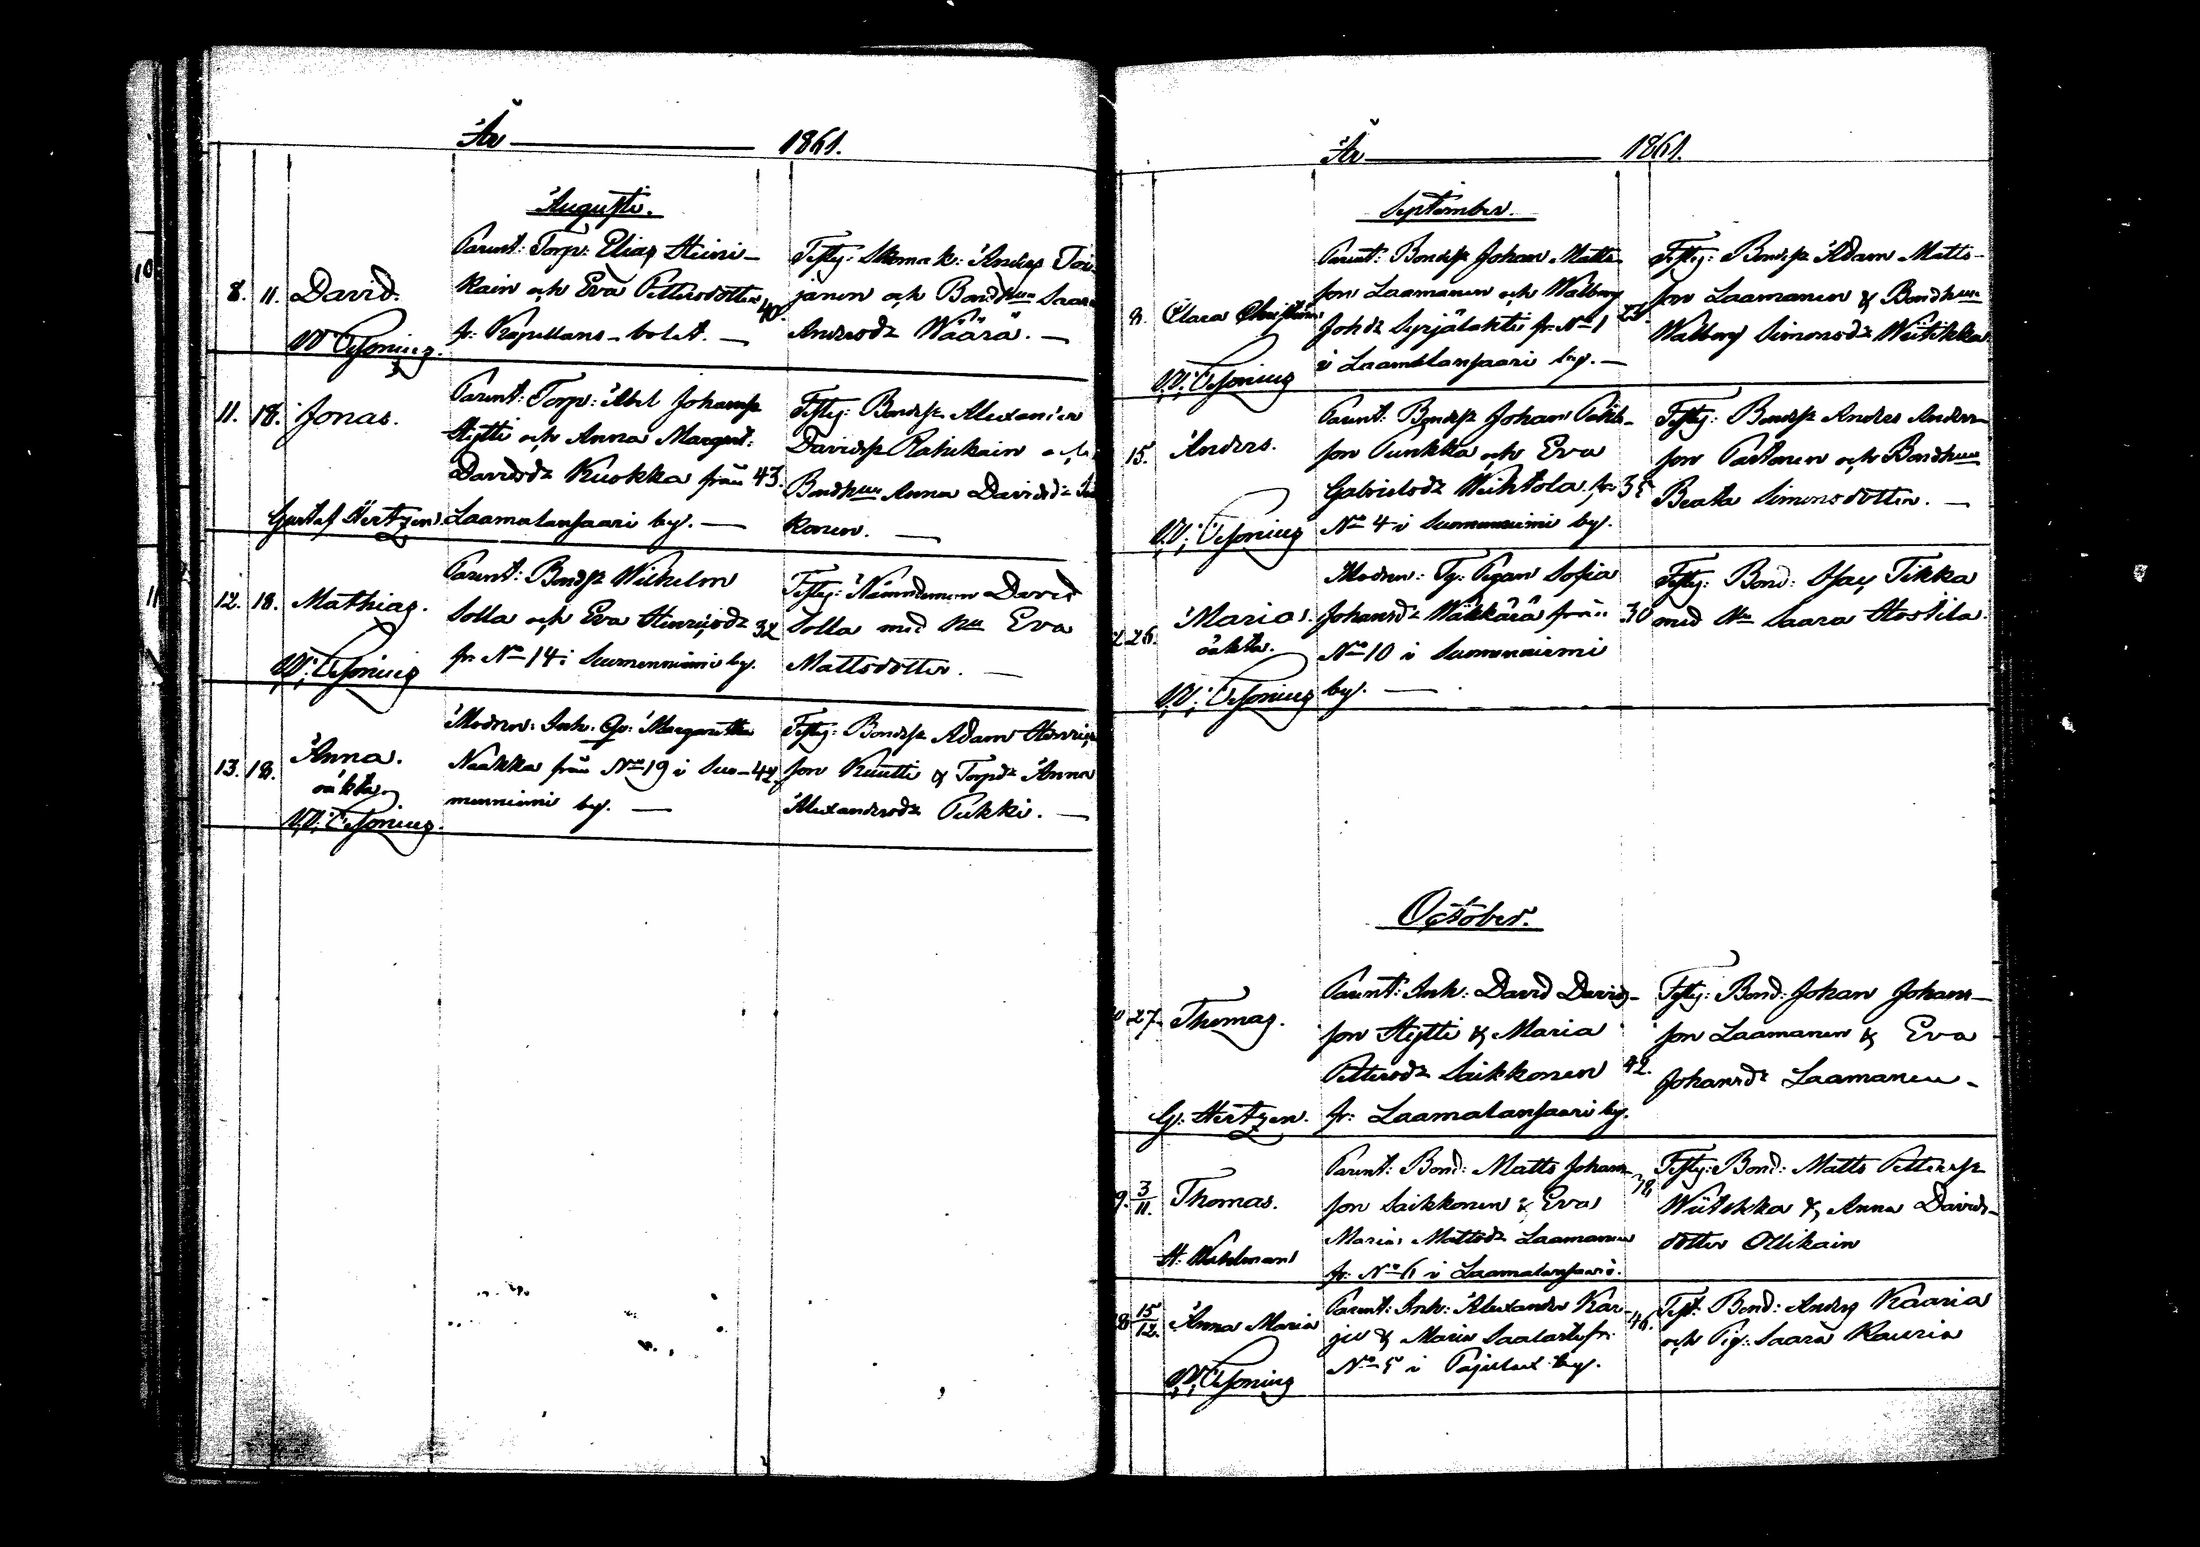 10
11
År 1861.
Augusti.
8. 11. David.
Parent: Torp: Elias Heini-
kain och Eva Pettersdotter 40.
fr. Kapellans-bolet. —
Testy: Skomak: Anders Toi-
janen och Bondhun Saara
Andersdr Wäärä. —
11. 18. Jonas.
Gustaf Hertzen.
Parent: Torp: Abel Johanss
Hytti och Anna Margret:
Davidsdr Kuokka från 43.
Laamalansaari by. —
Testy: Bondess Alexander
Davidss Rahikain och
Bondhun Anna Davidsdr
konen. —
12. 18. Mathias.
Parent: Bondss Wilhelm
Solla och Eva Henricsdr 32
fr. No 14 i Suomenniemi by.
Testy: Nämndeman David
Solla med hu Eva
Mattsdotter. —
13. 18. Anna.
oäkta
Modren: Inh. Qv: Margaretha
Naakka från No 19 i Suo- 42
menniemi by. —
Testy: Bondess Adam Henrics
son Kuutti & Torpdr Anna
Alexandersdr Pukki. —
År 1861.
September.
8. Clara Christina
Parent: Bondess Johan Matts-
son Laamanen och Walborg 23.
Johdr Syrjälahti fr. No 1
i Laamalansaari by. —
Testy: Bondess Adam Matts-
son Laamanen & Bondhun
Walborg Simonsdr Wiitikka
15. Anders.
Parent: Bondess Johan
son Punkka och Eva
Gabrielsdr Weihtola fr. 35
No 4 i Suomenniemi by.
Testy: Bondess Anders Anders-
son Partanen och Bondhun
Beata Simonsdotter. —
26. Maria.
oäkta.
Modren: Tj: Pigan Sofia
Johansdr Wäkkärä från 30
No 10 i Suomenniemi
by. —
Testy: Bond: Esaj Tikka
med Hu Saara Hostila.
October.
27. Thomas.
G: Hertzen.
Parent: Inh: David Davids-
son Hytti & Maria
Pettersdr Saikkonen 42.
fr: Laamalansaari by.
Testy: Bond: Johan Johans-
son Laamanen & Eva
Johansdr Laamanen -
9. 3/11. Thomas.
Parent: Bond: Matts Johans-
son Saikkonen & Eva 38
Maria Mattsdr Laamanen
fr: No 6 i Laamalansaari.
Testy: Bond: Matts Petterss
Wiitikka & Anna Davids-
dotter Ollikain
15/12. Anna Maria
Parent: Inh: Alexander Kar-
ju & Maria Saalasti fr: 46.
No 5 i by.
Test: Bond: Anders Kaaria
och Pig: Saara Kauria